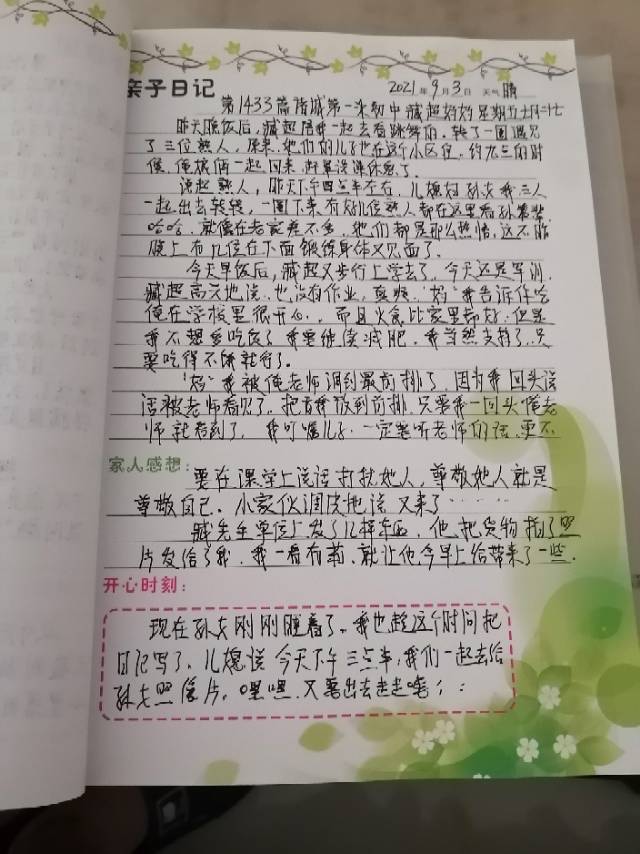 亲子日记 2021年9月3日 天气晴
第1433篇诸城第一初中臧超妈妈星期五
昨天晚饭后，臧超陪我一起去看跳舞的，转了一圈遇见
了三位熟人，原来他们的儿子也在这个小区住，约九点的时
候，俺娘俩一起回来，
说起熟人，昨天下午四点半左右，儿媳妇孙女我三人
一起出去转转，一圈下来有好几位熟人都在这里看孙
哈哈，就像在老家差不多，他们都是那么热情，这不昨
晚上有几位在下面锻炼身体又见面了。
今天早饭后，臧超又步行上学去了，今天还是军训，
臧超高兴地说，也没有作业，"妈"我告诉你
俺在学校里很开心，而且火食比家里都好，但是
我不想多吃饭了我要继续减肥，我当然支持了，只
要吃得不饿就行了。
"妈"我被俺老师调到最前排了，因为我回头说
话被老师看见了，把我放到前排，只要我一回头俺老
师就看到了，我叮嘱儿子，一定要听老师的话，更不
家人感想：
要在课堂上说话打扰她人，尊敬她人就是
尊敬自己。小家伙调皮地说又来了……
臧先生单位上发了几样东西，他把货物拍了照
片发给了我，我一看有菊，就让他今早上给带来了一些.
开心时刻：
现在孙女刚刚睡着了，我也趁这个时间把
日记写了，儿媳说今天下午三点半，我们一起去给
孙女照像片，嘿嘿，又要出去走走哦；：